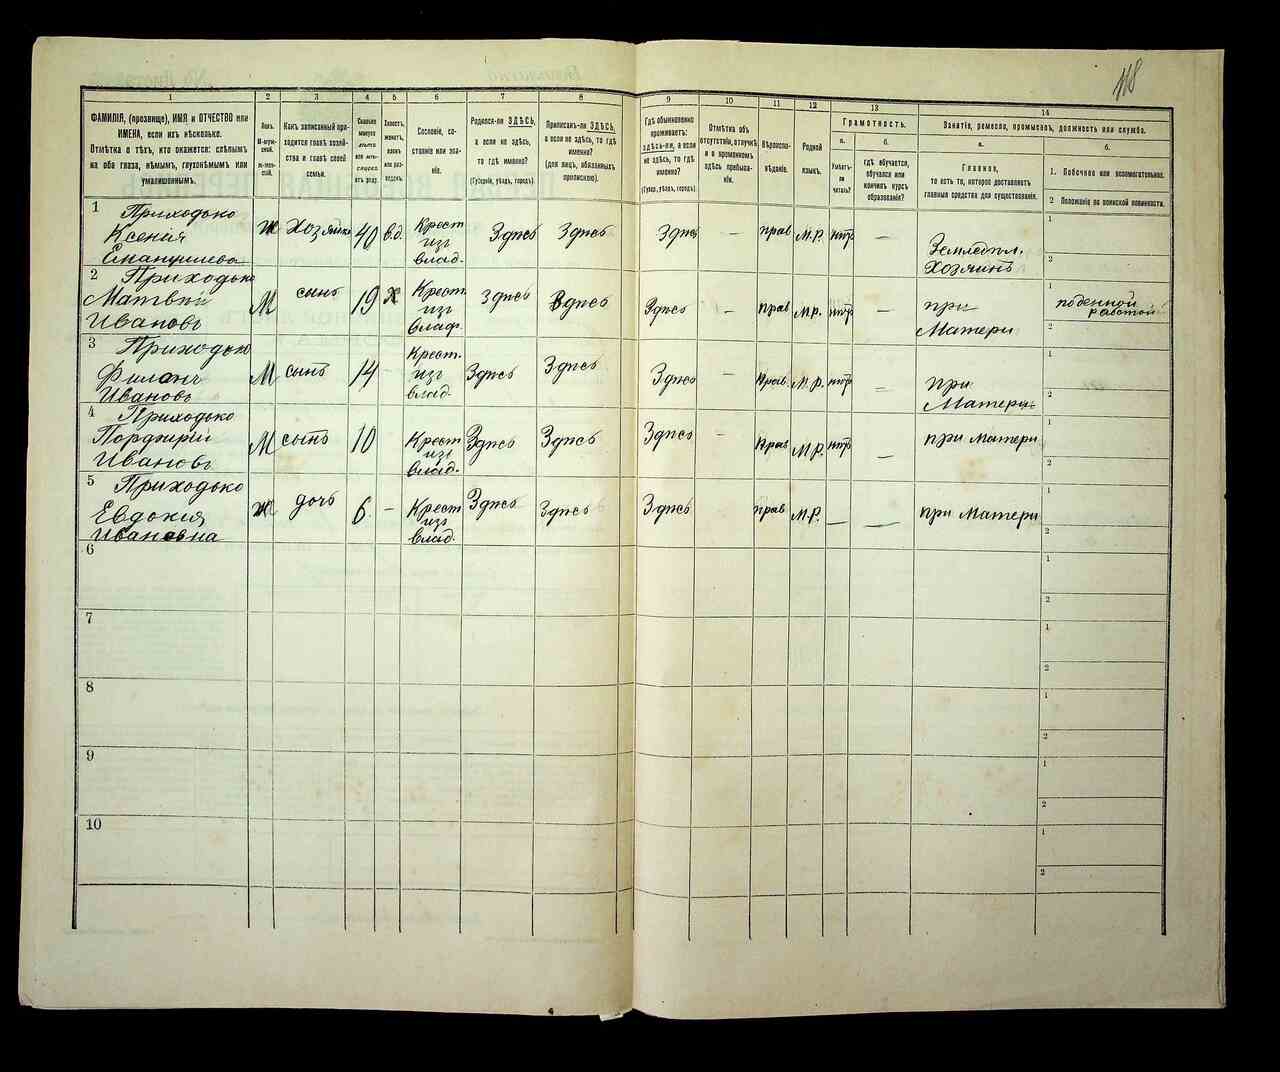 118
1 2 3 4 5 6 7 8 9 10 11 12 13 14
ФАМИЛІЯ, (прозвище), ИМЯ и ОТЧЕСТВО или
ИМЕНА, если ихъ нѣсколько.
Отмѣтка о тѣхъ, кто окажется: слѣпымъ
на оба глаза, нѣмымъ, глухонѣмымъ или
умалишеннымъ.
Полъ.
М-муж-
ской.
Ж-жен-
скій.
Какъ записанный при-
ходится главѣ хозяй-
ства и главѣ своей
семьи.
Сколько
минуло
лѣтъ
или мѣ-
сяцевъ
отъ роду.
Холостъ,
женатъ,
вдовъ
или раз-
веденъ.
Сословіе, со-
стояніе или зва-
ніе.
Родился-ли ЗДѢСЬ,
а если не здѣсь,
то гдѣ именно?
(Губернія, уѣздъ, городъ).
Приписанъ-ли ЗДѢСЬ,
а если не здѣсь, то гдѣ
именно?
(для лицъ, обязанныхъ
припискою).
Гдѣ обыкновенно
проживаетъ:
здѣсь-ли, а если
не здѣсь, то гдѣ
именно?
(Губер., уѣздъ, городъ).
Отмѣтка объ
отсутствіи, отлучкѣ
и о временномъ
здѣсь пребыва-
ніи.
Вѣроиспо-
вѣданіе.
Родной
языкъ.
Грамотность.
а.
Умѣетъ-
ли
читать?
б.
гдѣ обучается,
обучался или
кончилъ курсъ
образованія?
Занятіе, ремесло, промыселъ, должность или служба.
а.
Главное,
то есть то, которое доставляетъ
главныя средства для существованія.
б.
1. Побочное или вспомогательное.
2 Положеніе по воинской повинности.
1 Приходько
Ксенія
Ж Хозяйка 40 вд. Крест из влад. Здѣсь Здѣсь Здѣсь — прав М.Р. нѣтъ —
Земледѣл.
Хозяинъ
1
2
2 Приходько
Матвѣй
Ивановъ
М сынъ 19 Х Крест из влад. Здѣсь Здѣсь Здѣсь — прав М.Р. нѣтъ —
при
Матери
1 поденной
работой
2
3 Приходько
Ивановъ
М сынъ 14 Крест. из влад. Здѣсь Здѣсь Здѣсь — Прав. М.Р. нѣтъ —
при
Матери
1
2
4 Приходько
Порфирій
Ивановъ
М сынъ 10 Крест из влад. Здѣсь Здѣсь Здѣсь — Прав М.Р. нѣтъ —
при Матери
1
2
5 Приходько
Евдокія
Ивановна
Ж дочь 6. — Крест из влад. Здѣсь Здѣсь Здѣсь прав М.Р. — —
при Матери
1
2
6
1
2
7
1
2
8
1
2
9
1
2
10
1
2